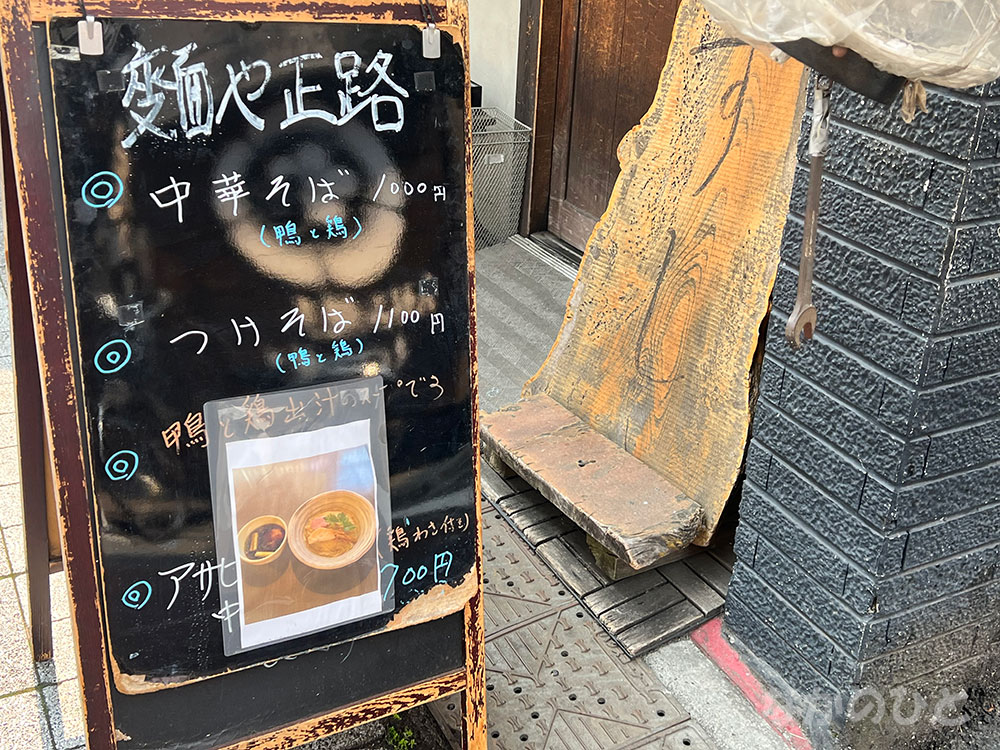 麺や正路
◎ 中華そば 1000円
(鴨と鶏)
◎ つけそば 1100円
(鴨と鶏)
鴨と鶏出汁の
◎
(鶏わさ付き)
◎ アサヒ 700円
中
かがのひと